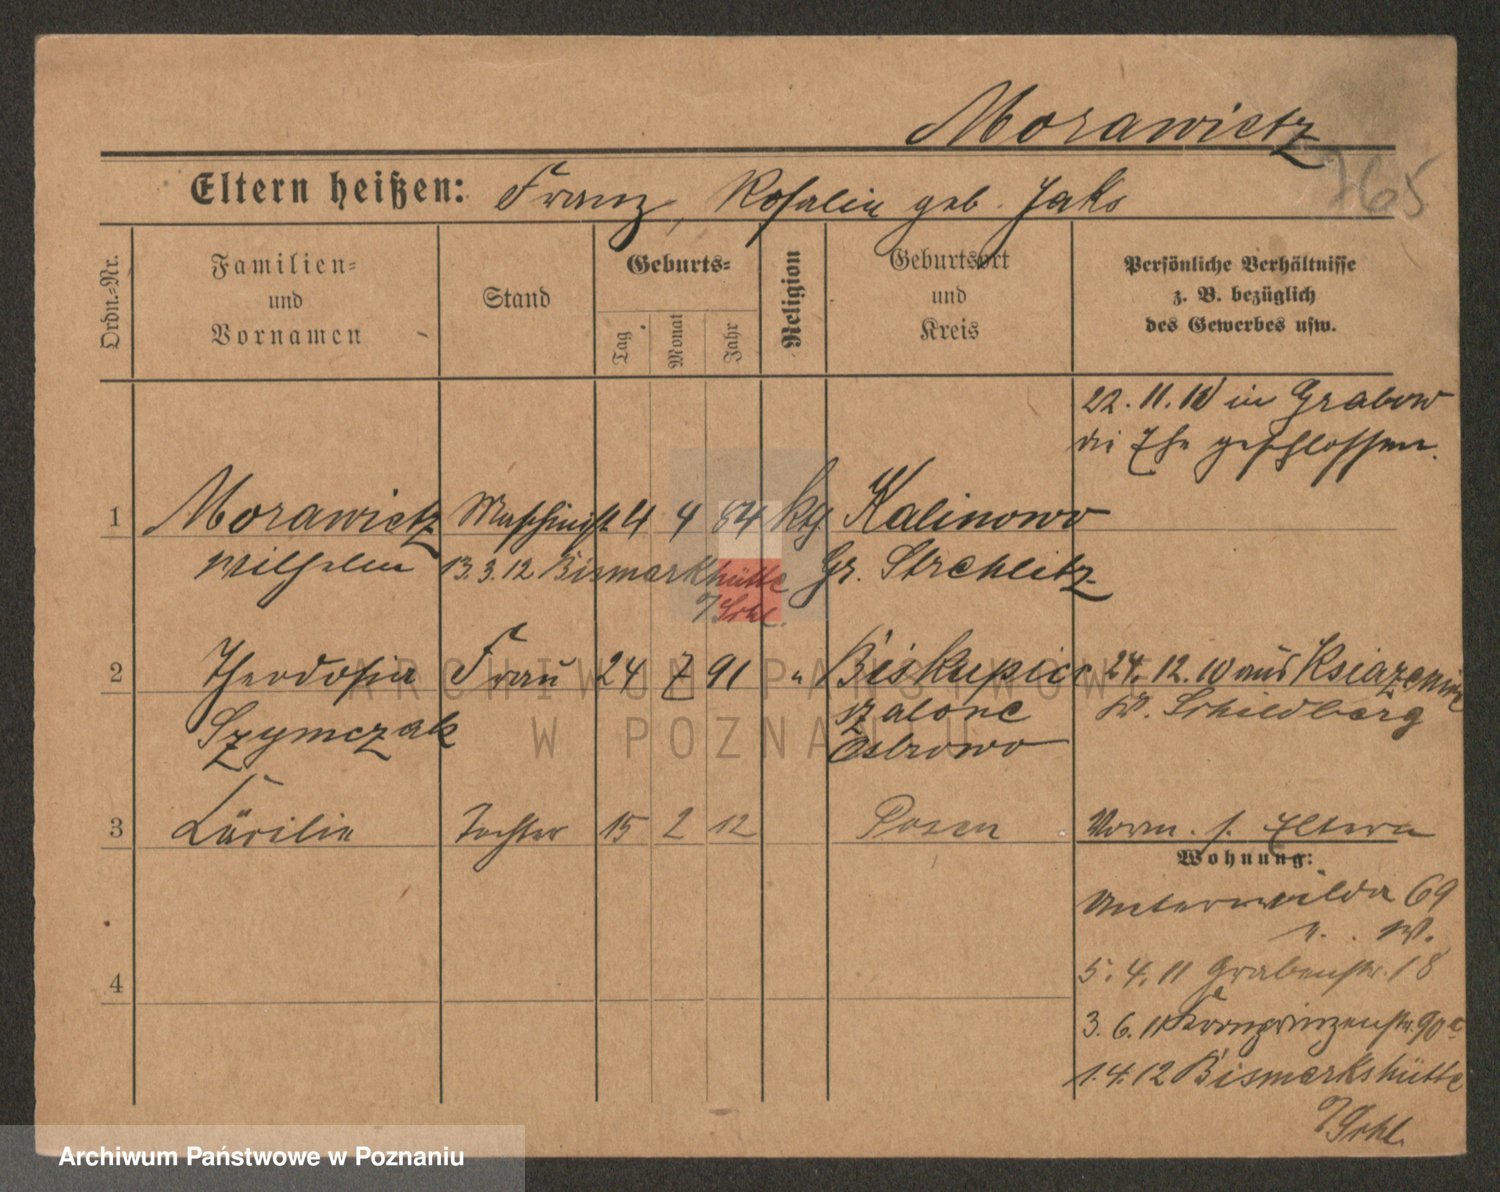 Morawietz
765
Eltern heißen: Franz, Rosalie geb. Jaks
Ordn.-Nr.
Familien-
und
Vornamen
Stand
Geburts-
Tag
Monat
Jahr
Religion
Geburtsort
und
Kreis
Persönliche Verhältnisse
z. B. bezüglich
des Gewerbes usw.
22. 11. 10 in Grabow
die Ehe geschlossen.
1 Morawietz Maschinist 4 4 84 kg Kalinowo
Wilhelm 13.3.12 Bismarkhütte Gr. Strehlitz
O/Schl.
2 Theodosia Frau 24 7 91 " Biskupice 24. 12. 10 aus Ksiazenice
Szymczak szalone Kr. Schildberg
Ostrowo
3 Cäcilie Tochter 15 2 12 Posen Vorm. s. Eltern
Wohnung:
Unterwilda 69
b. W.
4
5. 4. 11 Grabenstr. 18
3. 6. 11 Kronprinzenstr. 90a
1. 4. 12 Bismarkshütte
O/Schl.
ARCHIWUM PAŃSTWOWE
W POZNANIU
Archiwum Państwowe w Poznaniu